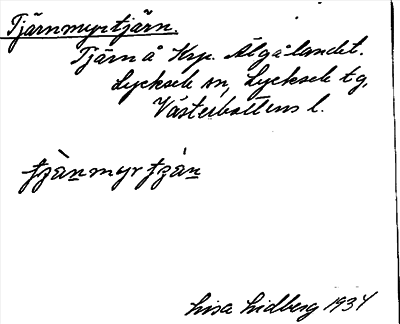 Tjärnmyrtjärn.
Tjärn å Krp. Älgålandet.
Lycksele sn, Lycksele tg,
Västerbottens l.
tjä̀n myr tjän
Lisa Lidberg 1934